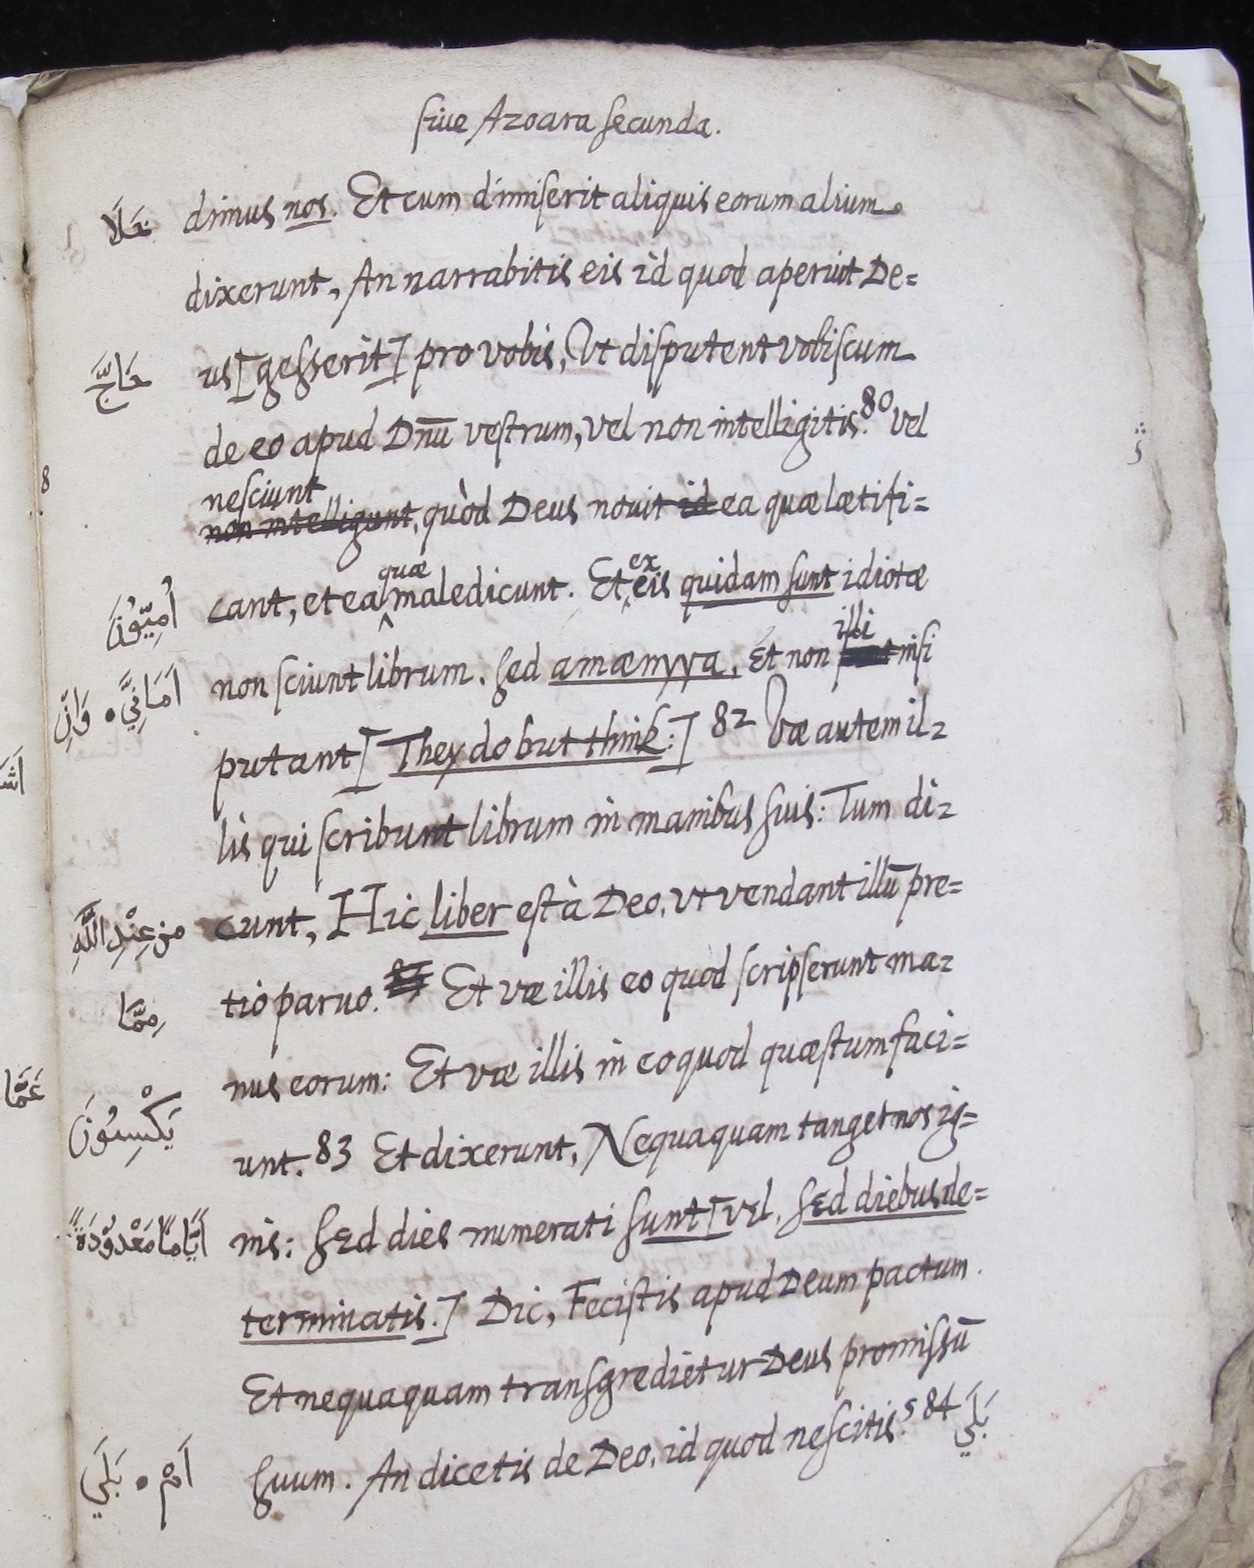 siue Azoara secunda.
خَلَا dimus nos. Et cum dimiserit aliquis eorum alium
dixerunt, An narrabitis eis id quod aperuit De=
حَاجَّ us[gesserit] pro vobis, Vt disputent vobiscum
de eo apud Dnū vestrum, vel non intelligitis? 80 vel
8
nesciunt
non intelligunt, quòd Deus nouit id ea quæ lætifi=
quæ ex
أُمِيُّونَ cant, et ea maledicunt. Et eis quidam sunt idiotæ
illi
أَمَانِيَّ • وَإِنْ non sciunt librum. sed amænyya. Et non nisi
putant[They do but think:] 82 Væ autem il=
lis qui scribunt librum in manibus suis: Tum di=
من عِنْدِ اللَّهِ cunt, Hic liber est à Deo. vt vendant illū pre=
مِمَّا tio paruo. Et væ illis eo quod scripserunt ma=
nus eorum: Et væ illis in eo quod quæstum faci=
يَكْسِبُونَ unt. 83 Et dixerunt, Nequaquam tanget nos ig=
أَيَّامًا مَعْدُودَةً nis: sed dies numerati sunt[vel. sed diebus de=
terminatis.] Dic, Fecistis apud Deum pactum.
Et nequaquam transgredietur Deus promissū
أَمْ • بَلَي suum. An dicetis de Deo. id quod nescitis? 84 بَلَي
عَمَّا